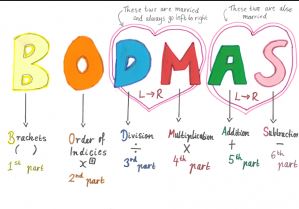 These two are married
and always go left to right
These two are also
married
BODMAS
L→R
L→R
Brackets
( )
1st part
Order of
Indicies
x⁽⁴⁾
2nd part
Division
÷
3rd part
Multiplication
×
4th part
Addition
+
5th part
Subtraction
−
6th part